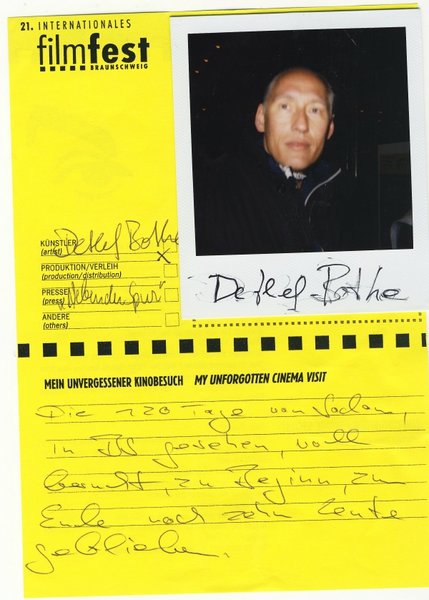 21. INTERNATIONALES
filmfest
BRAUNSCHWEIG
KÜNSTLER
(artist)
Detlef Bothe
x
PRODUKTION/VERLEIH
(production/distribution)
PRESSE
(press)
"Nebenderspur"
ANDERE
(others)
Detlef Bothe
MEIN UNVERGESSENER KINOBESUCH MY UNFORGOTTEN CINEMA VISIT
Die 120 Tage von Sodom,
in BS gesehen, voll
besucht, zu Beginn, zum
Ende noch zehn Leute
geblieben.